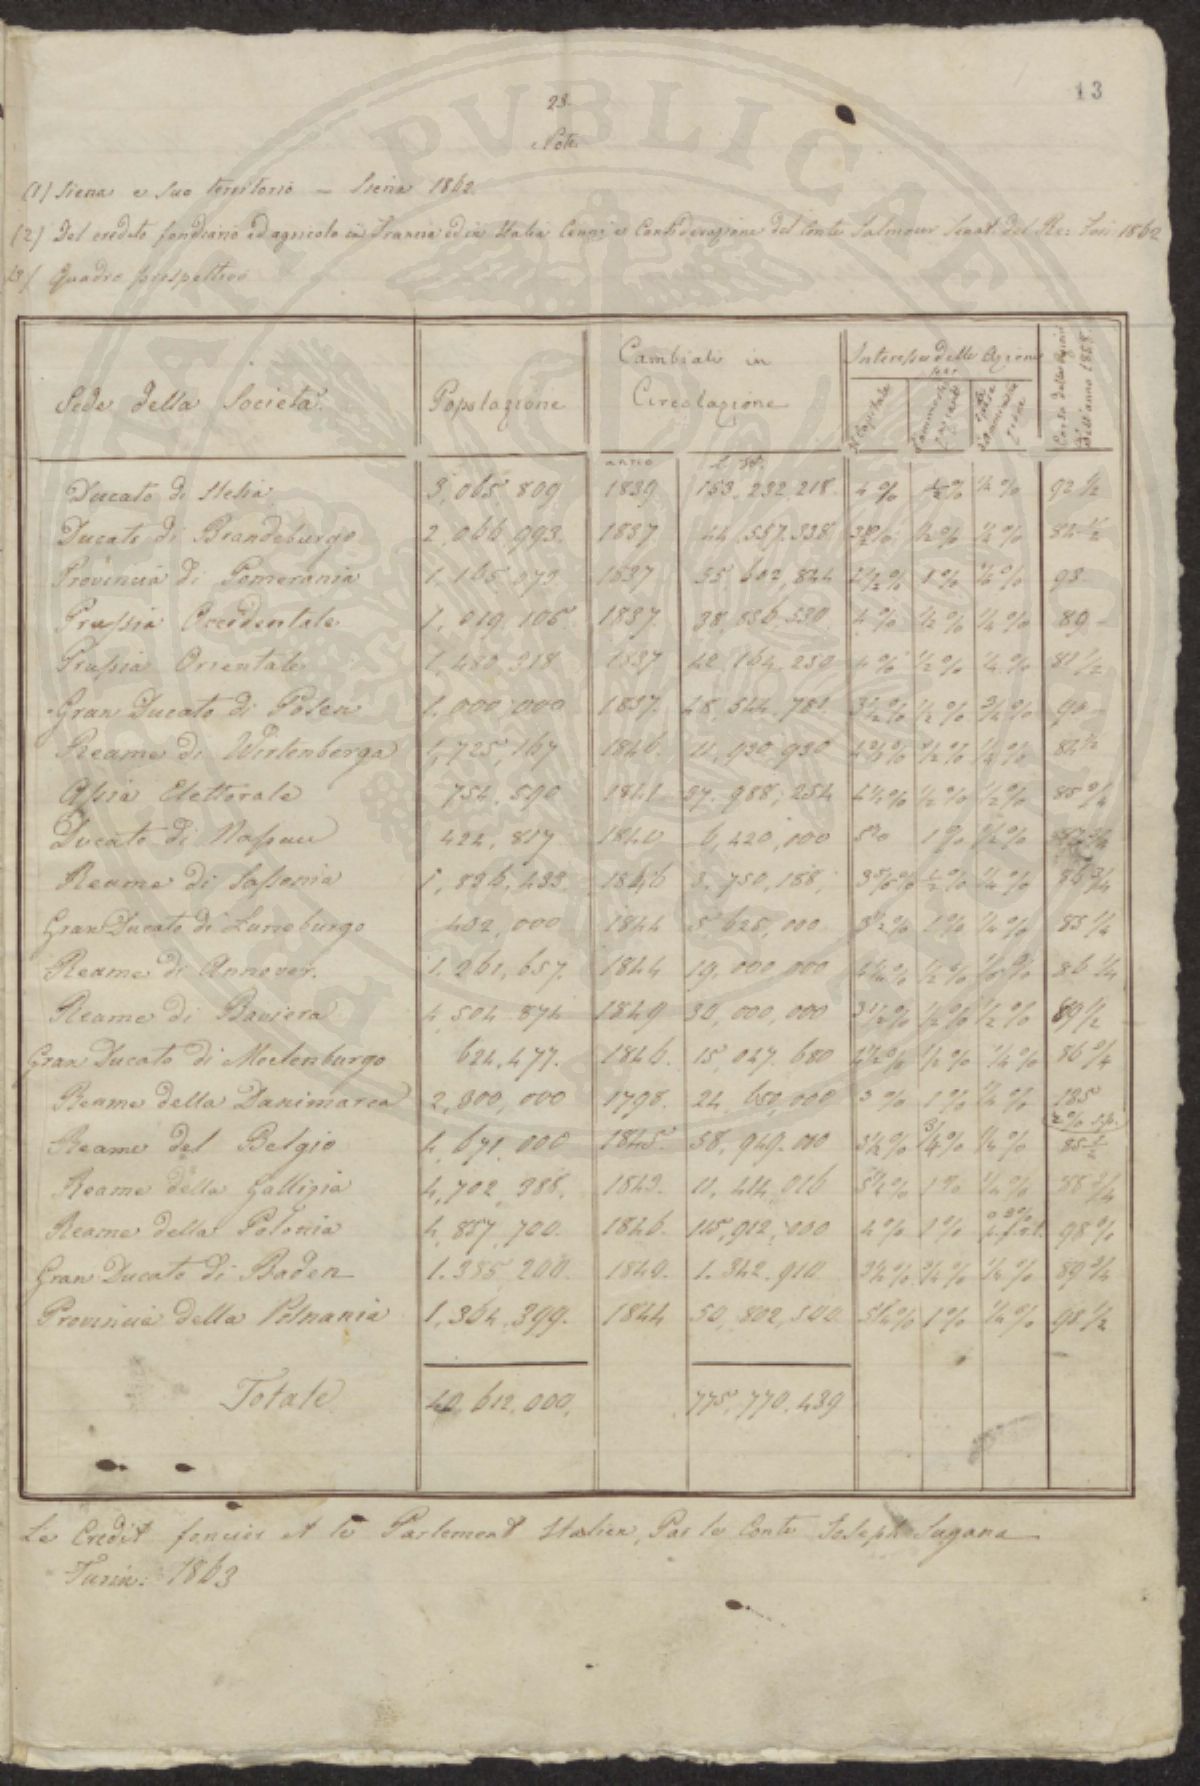 13
23.
Note
(1) Siena e suo territorio — Siena 1862.
(2) Del credito fondiario ed agricolo in Francia ed in Italia Cenni e Considerazione del Conte Salmour Senat. del Re: Tori 1862
(3) Quadro prospettivo
Sede della Società. Popolazione Cambiali in Circolazione Interesse delle Azione
anno L. st.
Ducato di Slesia 3,065,809 1839 163,232,218. 4% ½% ¼% 92 ½
Ducato di Brandeburgo 2,066,993. 1837 44,557,538 ½% ¼% 84 ½
Provincia di Pomerania 1,165,073 1837 55,602,844 1% ¼% 93
Prussia Occidentale 1,019,105 1837 38,836,530 4% ½% ¼% 89
Prussia Orientale 1,480,318 1837 42,164,250 4% ½% ¼% 81 ½
Gran Ducato di Posen 1,000,000 1837. 48,544,781 3½% ½% ¼% 90
Reame di Wirtenberga 1,725,167 1846. 11,930,930 ½% ¼% 84 ½
Assia Elettorale 754,590 1841 27,988,254 4½% ½% ½% 85 ¾
Ducato di Nassau 424,817 1840 6,420,000 1% ¼%
Reame di Sassonia 1,836,433 1846 3,750,188, ½% ¼% 86 ¾
Gran Ducato di Luneburgo 432,000 1844 5,625,000 3½% 1% ¼% 83 ¼
Reame di Annover. 1,261,657. 1844 19,000,000 ½% 86 ¼
Reame di Baviera 4,504,874 1849 30,000,000 3½% ½% ½% 89 ½
Gran Ducato di Meclenburgo 624,477. 1846. 15,047,680 4½% ½% ¼% 86 ¾
Reame della Danimarca 2,300,000 1798. 24,650,000 3% 1% ¼% 185
Reame del Belgio 4,671,000 1845. 58,949,000 3½% ¾% ¼% 85 ½
Reame della Gallizia 4,702,388, 1843. 11,414,016 1% ¼% 88 ¾
Reame della Polonia 4,857,700. 1846. 115,912,000 4% 1% 98%
Gran Ducato di Baden 1.385,200. 1849. 1.342.910 ¼% ¼% 89 ¾
Provincia della Posnania 1,364,399. 1844 50,802,500 1% ¼% 98 ½
Totale 40,612,000, 775,770,439
Le Credit foncier et le Parlement Italien, Par le Conte Joseph Sugana
Turin: 1863